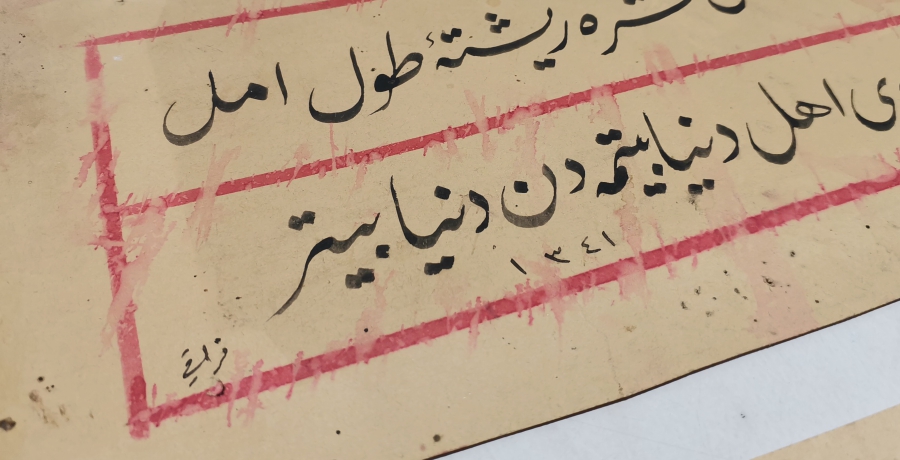 ریشتهٔ طول امل
اهل دنیا بیتمه دن دنیا بیتر
١٣٤١